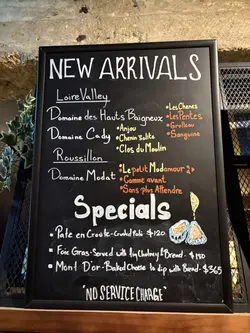 NEW ARRIVALS
Loire Valley
Domaine des Hauts Baigneux
• Les Chenes
• Les Pentes
• Grolleau
• Sanguine
Domaine Cady
• Anjou
• Chenin Solito
• Clos du Moulin
Roussillon
Domaine Modat
• Le petit Modamour
• Comme avant
• Sans plus Attendre
Specials
• Pate en Croute - Crusted Pate $120
• Foie Gras - Served with Fig Chutney & Bread - $180
• Mont D'or - Baked Cheese to dip with Bread - $365
"NO SERVICE CHARGE"